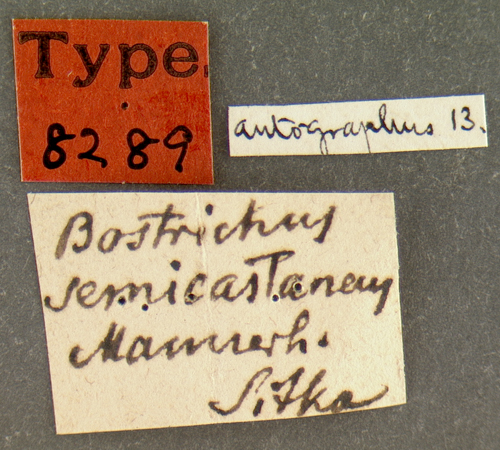 Type.
8289
autographus 13.
Bostrichus
semicastaneus
Mannerh.
Sitka